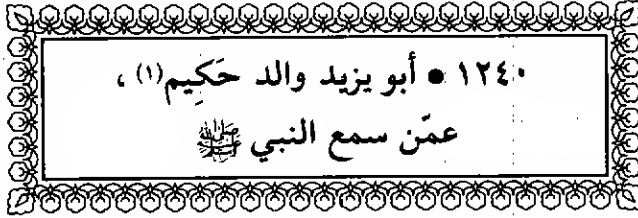 ١٢٤٠ • أبو يزيد والد حَكِيم(١) ،
عمّن سمع النبي ﷺ